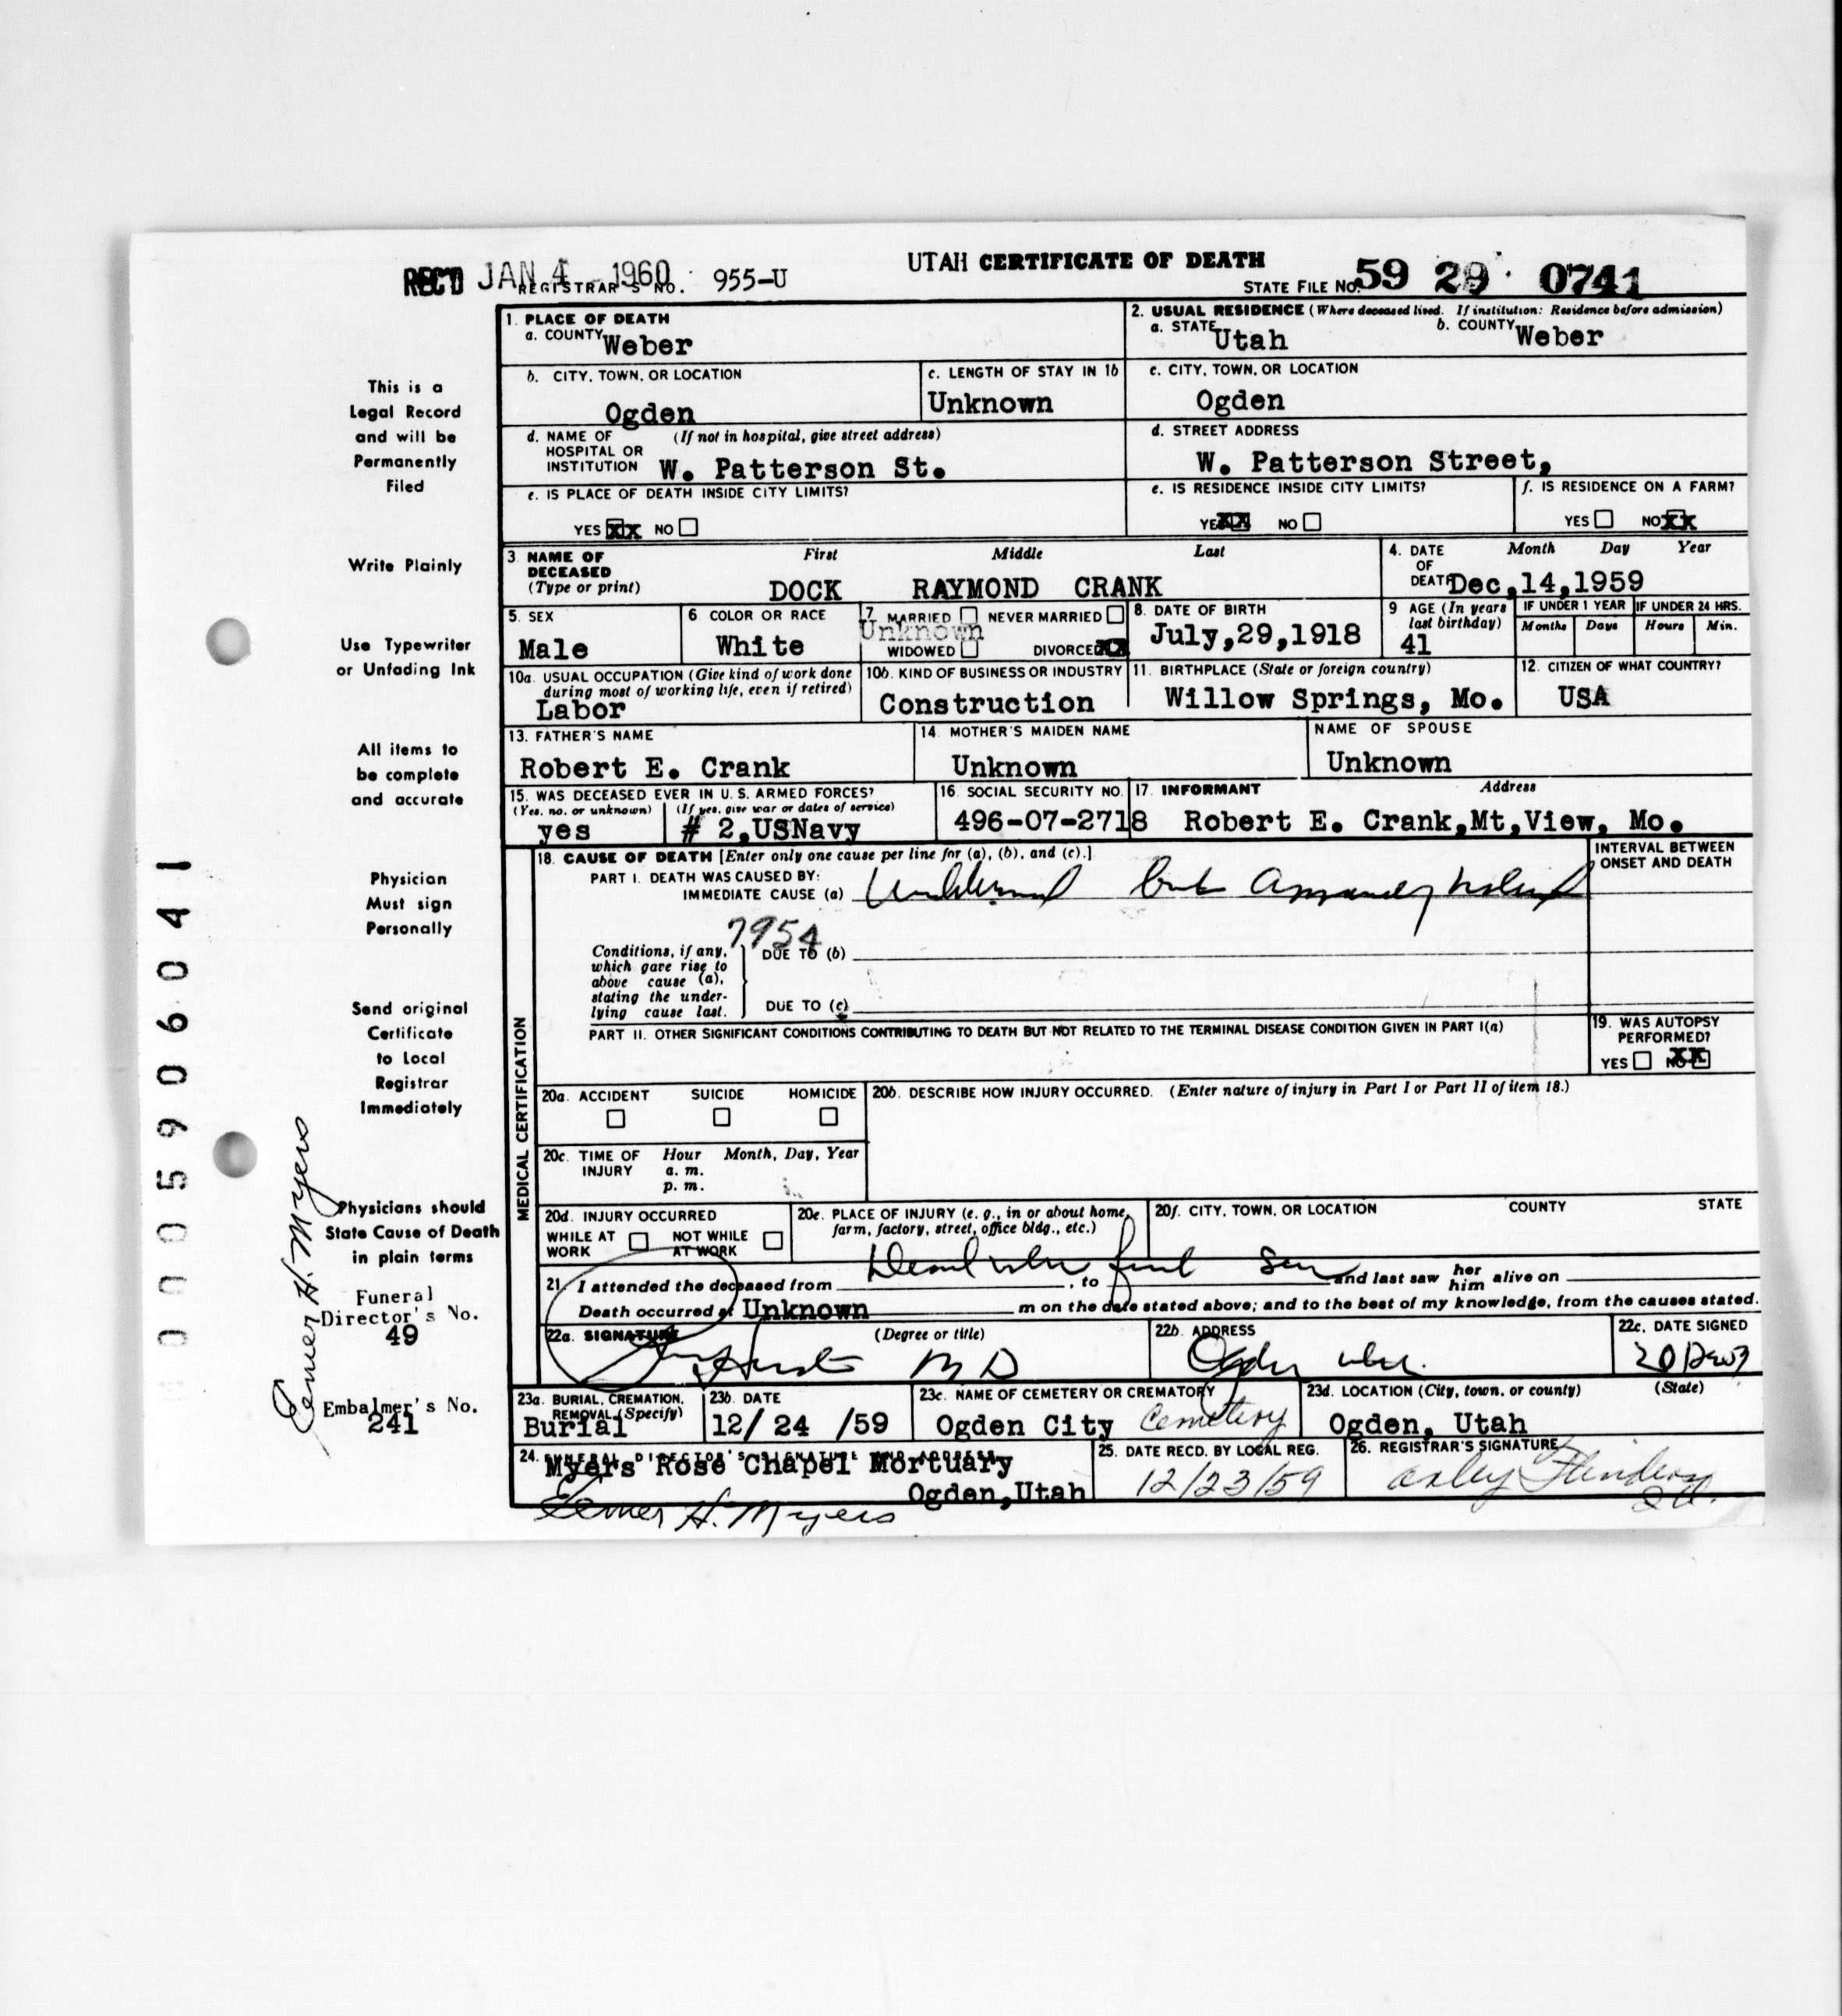 UTAH CERTIFICATE OF DEATH
REC'D JAN 4 1960 REGISTRAR'S NO. 955-U STATE FILE NO. 59 29 0741
1. PLACE OF DEATH
a. COUNTY Weber
2. USUAL RESIDENCE (Where deceased lived. If institution: Residence before admission)
a. STATE Utah b. COUNTY Weber
b. CITY, TOWN, OR LOCATION Ogden
c. LENGTH OF STAY IN 1b Unknown
c. CITY, TOWN, OR LOCATION Ogden
d. NAME OF HOSPITAL OR INSTITUTION (If not in hospital, give street address) W. Patterson St.
d. STREET ADDRESS W. Patterson Street,
e. IS PLACE OF DEATH INSIDE CITY LIMITS?
YES XX NO
e. IS RESIDENCE INSIDE CITY LIMITS?
YES XX NO
f. IS RESIDENCE ON A FARM?
YES NO XX
3. NAME OF DECEASED (Type or print) First Middle Last
DOCK RAYMOND CRANK
4. DATE OF DEATH Month Day Year
Dec,14,1959
5. SEX Male
6. COLOR OR RACE White
7. MARRIED NEVER MARRIED
Unknown
WIDOWED DIVORCED XX
8. DATE OF BIRTH July,29,1918
9 AGE (In years last birthday) 41
IF UNDER 1 YEAR Months Days
IF UNDER 24 HRS. Hours Min.
10a. USUAL OCCUPATION (Give kind of work done during most of working life, even if retired) Labor
10b. KIND OF BUSINESS OR INDUSTRY Construction
11. BIRTHPLACE (State or foreign country) Willow Springs, Mo.
12. CITIZEN OF WHAT COUNTRY? USA
13. FATHER'S NAME Robert E. Crank
14. MOTHER'S MAIDEN NAME Unknown
NAME OF SPOUSE Unknown
15. WAS DECEASED EVER IN U.S. ARMED FORCES?
(Yes, no, or unknown) yes (If yes, give war or dates of service) # 2,USNavy
16. SOCIAL SECURITY NO. 496-07-2718
17. INFORMANT Address
Robert E. Crank,Mt,View, Mo.
MEDICAL CERTIFICATION
18. CAUSE OF DEATH [Enter only one cause per line for (a), (b), and (c).]
INTERVAL BETWEEN ONSET AND DEATH
PART I. DEATH WAS CAUSED BY:
IMMEDIATE CAUSE (a)
7954
Conditions, if any, which gave rise to above cause (a), stating the underlying cause last.
DUE TO (b)
DUE TO (c)
PART II. OTHER SIGNIFICANT CONDITIONS CONTRIBUTING TO DEATH BUT NOT RELATED TO THE TERMINAL DISEASE CONDITION GIVEN IN PART I(a)
19. WAS AUTOPSY PERFORMED?
YES NO XX
20a. ACCIDENT SUICIDE HOMICIDE
20b. DESCRIBE HOW INJURY OCCURRED. (Enter nature of injury in Part I or Part II of item 18.)
20c. TIME OF INJURY Hour Month, Day, Year
a. m.
p. m.
20d. INJURY OCCURRED
WHILE AT WORK NOT WHILE AT WORK
20e. PLACE OF INJURY (e. g., in or about home, farm, factory, street, office bldg., etc.)
20f. CITY, TOWN, OR LOCATION COUNTY STATE
21. I attended the deceased from , to and last saw her him alive on
Death occurred at Unknown m on the date stated above; and to the best of my knowledge, from the causes stated.
22a. SIGNATURE (Degree or title) M D
22b. ADDRESS Ogden
22c. DATE SIGNED
23a. BURIAL, CREMATION, REMOVAL (Specify) Burial
23b. DATE 12/ 24 /59
23c. NAME OF CEMETERY OR CREMATORY Ogden City Cemetery
23d. LOCATION (City, town, or county) (State) Ogden, Utah
24. FUNERAL DIRECTOR'S SIGNATURE AND ADDRESS
Myers Rose Chapel Mortuary
Ogden,Utah
25. DATE RECD. BY LOCAL REG. 12/23/59
26. REGISTRAR'S SIGNATURE
H. Myers
This is a
Legal Record
and will be
Permanently
Filed
Write Plainly
Use Typewriter
or Unfading Ink
All items to
be complete
and accurate
Physician
Must sign
Personally
Send original
Certificate
to Local
Registrar
Immediately
Physicians should
State Cause of Death
in plain terms
Funeral
Director's No.
49
Embalmer's No.
241
H. Myers
0005906041